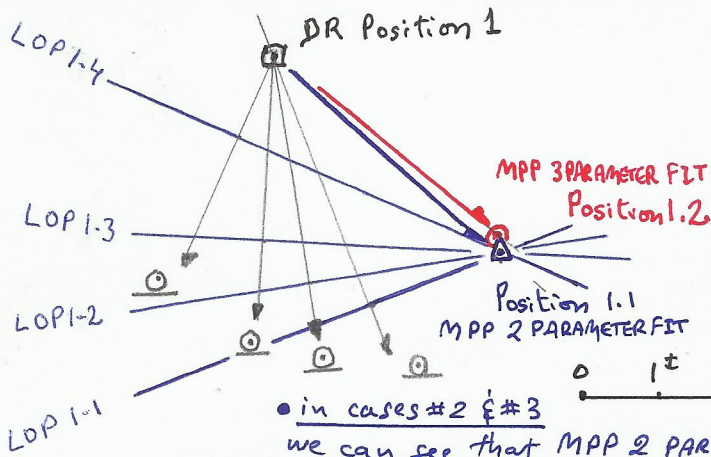 DR Position 1
LOP 1-4
MPP 3 PARAMETER FIT
Position 1.2
LOP 1-3
Position 1.1
MPP 2 PARAMETER FIT
LOP 1-2
LOP 1-1
0 1
• in cases #2 & #3
we can see that MPP 2 PAR